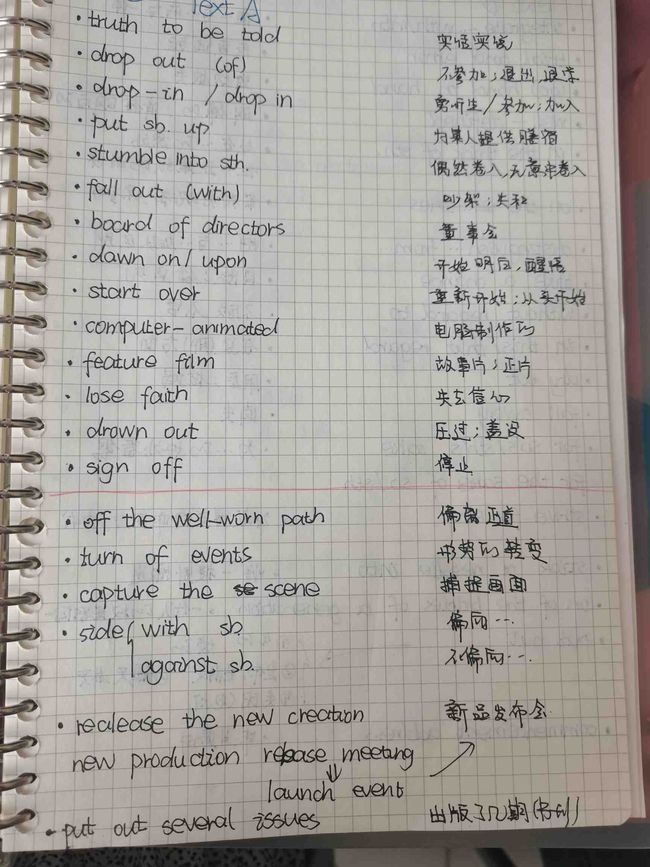 Text A
· truth to be told 实话实说
· drop out (of) 不参加；退出，退学
· drop-in / drop in 旁听生/参加；加入
· put sb. up 为某人提供膳宿
· stumble into sth. 偶然卷入，无意中卷入
· fall out (with) 吵架；失和
· board of directors 董事会
· dawn on/upon 开始明白，醒悟
· start over 重新开始；从头开始
· computer-animated 电脑制作的
· feature film 故事片；正片
· lose faith 失去信心
· drown out 压过；盖没
· sign off 停止
· off the well-worn path 偏离正道
· turn of events 形势的转变
· capture the scene 捕捉画面
· side with sb. 偏向…
against sb. 不偏向…
· realease the new creation 新品发布会
new production release meeting
launch event
· put out several issues 出版了几期(书刊)